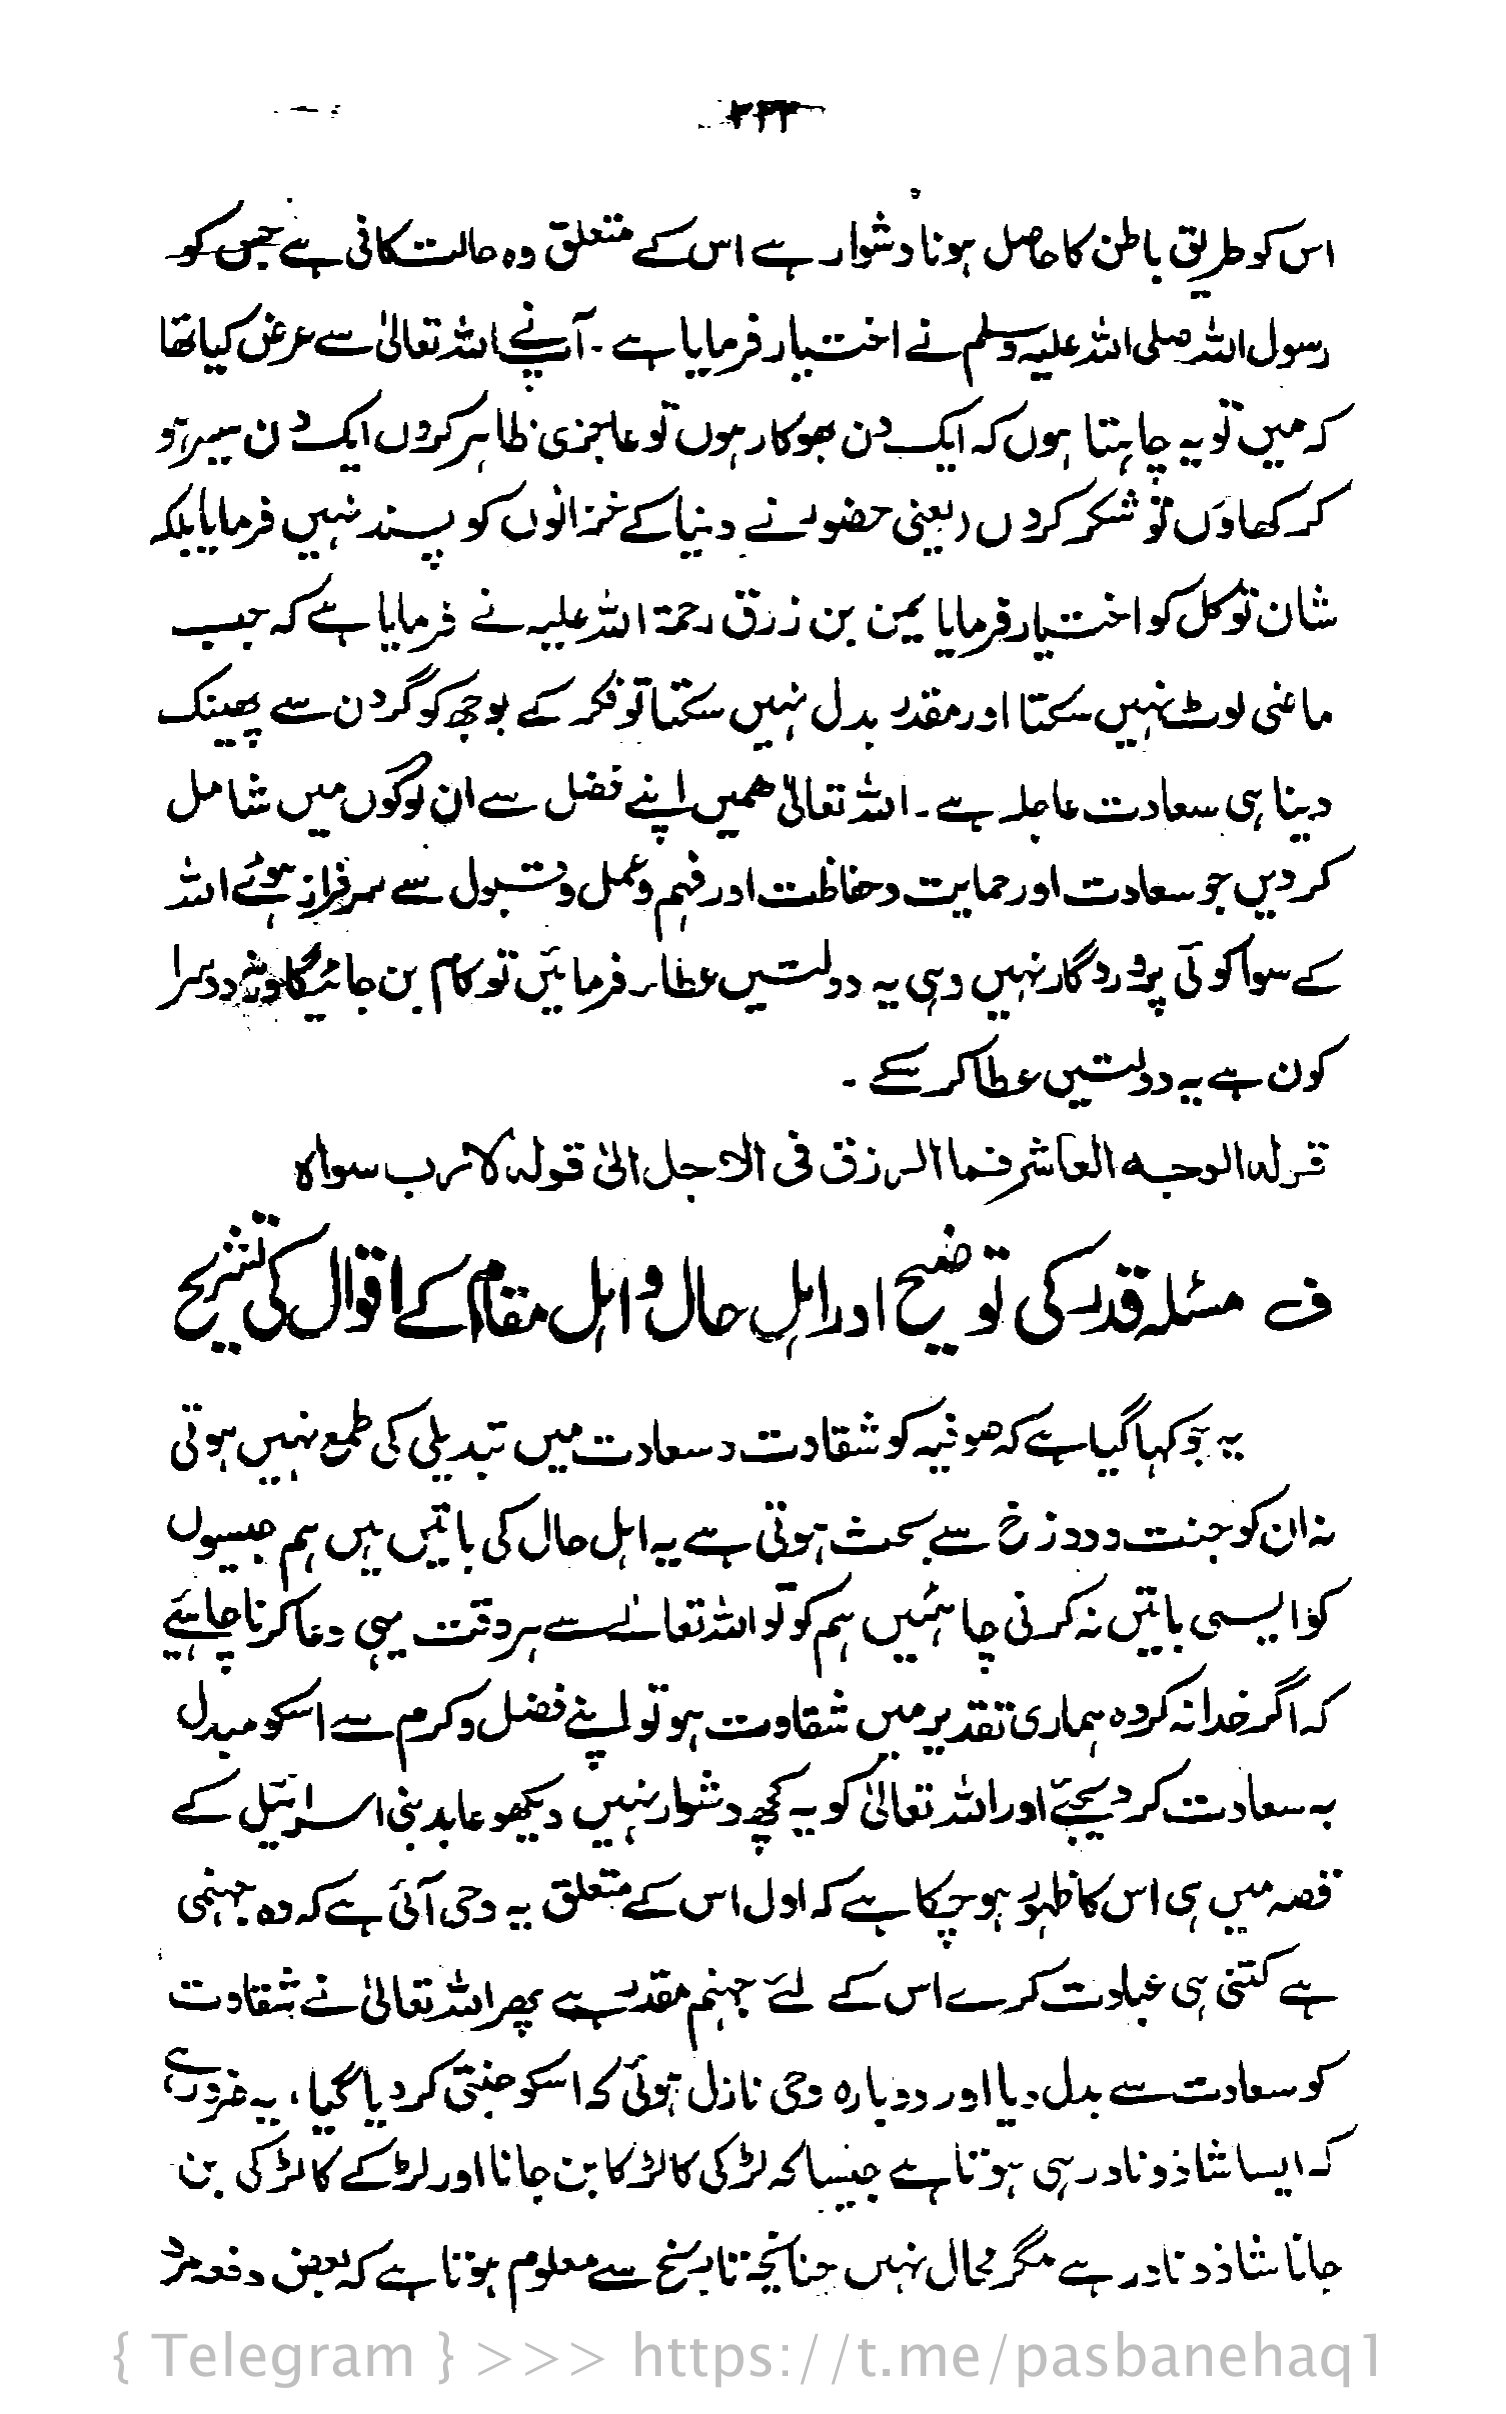 ۲۲۲
اس کو طریق باطن کا حاصل ہونا دشوار ہے اس کے متعلق وہ حالت کافی ہے جس کو
رسول اللہ صلی اللہ علیہ وسلم نے اختیار فرمایا ہے۔ آپنے اللہ تعالیٰ سے عرض کیا تھا
کہ میں تو یہ چاہتا ہوں کہ ایک دن بھوکا رہوں تو عاجزی ظاہر کردں ایک دن سیر ہو
کر کھاوَں تو شکر کردں (یعنی حضورؐ نے دنیا کے خزانوں کو پسند نہیں فرمایا بلکہ
شان توکل کو اختیار فرمایا یمن بن زرق رحمۃ اللہ علیہ نے فرمایا ہے کہ جب
ماضی لوٹ نہیں سکتا اور مقدر بدل نہیں سکتا تو فکر کے بوجھ کو گردن سے پھینک
دینا ہی سعادت عاجلہ ہے۔ اللہ تعالیٰ ھمیں اپنے فضل سے ان لوگوں میں شامل
کردیں جو سعادت اور حمایت وحفاظت اور فہم وعمل وقبول سے سرفراز ہوئے اللہ
کے سوا کوئی پروردگار نہیں وہی یہ دولتیں عطاء فرمائیں تو کام بن جائیگا ورنہ دوسرا
کون ہے یہ دولتیں عطا کر سکے ۔
قولہ الوجہ العاشر فما الرزق فی الاجل الیٰ قولہ لا رب سواہ
ف مسئلہ قدر کی توضیح اور اہلِ حال و اہل مقام کے اقوال کی تشریح
یہ جو کہا گیا ہے کہ صوفیہ کو شقادت وسعادت میں تبدیلی کی طمع نہیں ہوتی
نہ ان کو جنت ودوزخ سے بحث ہوتی ہے یہ اہل حال کی باتیں ہیں ہم جیسوں
کو ایسی باتیں نہ کرنی چاہئیں ہم کو تو اللہ تعالےٰ سے ہر وقت یہی دعا کرنا چاہئیے
کہ اگر خدانہ کردہ ہماری تقدیر میں شقاوت ہو تو اپنے فضل وکرم سے اسکو مبدل
بہ سعادت کر دیجئے اور اللہ تعالیٰ کو یہ کچھ دشوار نہیں دیکھو عابد بنی اسرائیل کے
قصہ میں ہی اس کا ظہور ہوچکا ہے کہ اول اس کے متعلق یہ وحی آئی ہے کہ وہ جہنمی
ہے کتنی ہی عبادت کرے اس کے لئے جہنم مقدر ہے پھر اللہ تعالیٰ نے شقاوت
کو سعادت سے بدل دیا اور دوبارہ وحی نازل ہوئی کہ اسکو جنتی کر دیا گیا، یہ ضرور ہے
کہ ایسا شاذ ونادر ہی ہوتا ہے جیسا کہ لڑکی کا لڑکا بن جانا اور لڑکے کا لڑکی بن
جانا شاذ ونادر ہے مگر محال نہیں چنانچہ تاریخ سے معلوم ہوتا ہے کہ بعض دفعہ مرد
{ Telegram } >>> https://t.me/pasbanehaq1